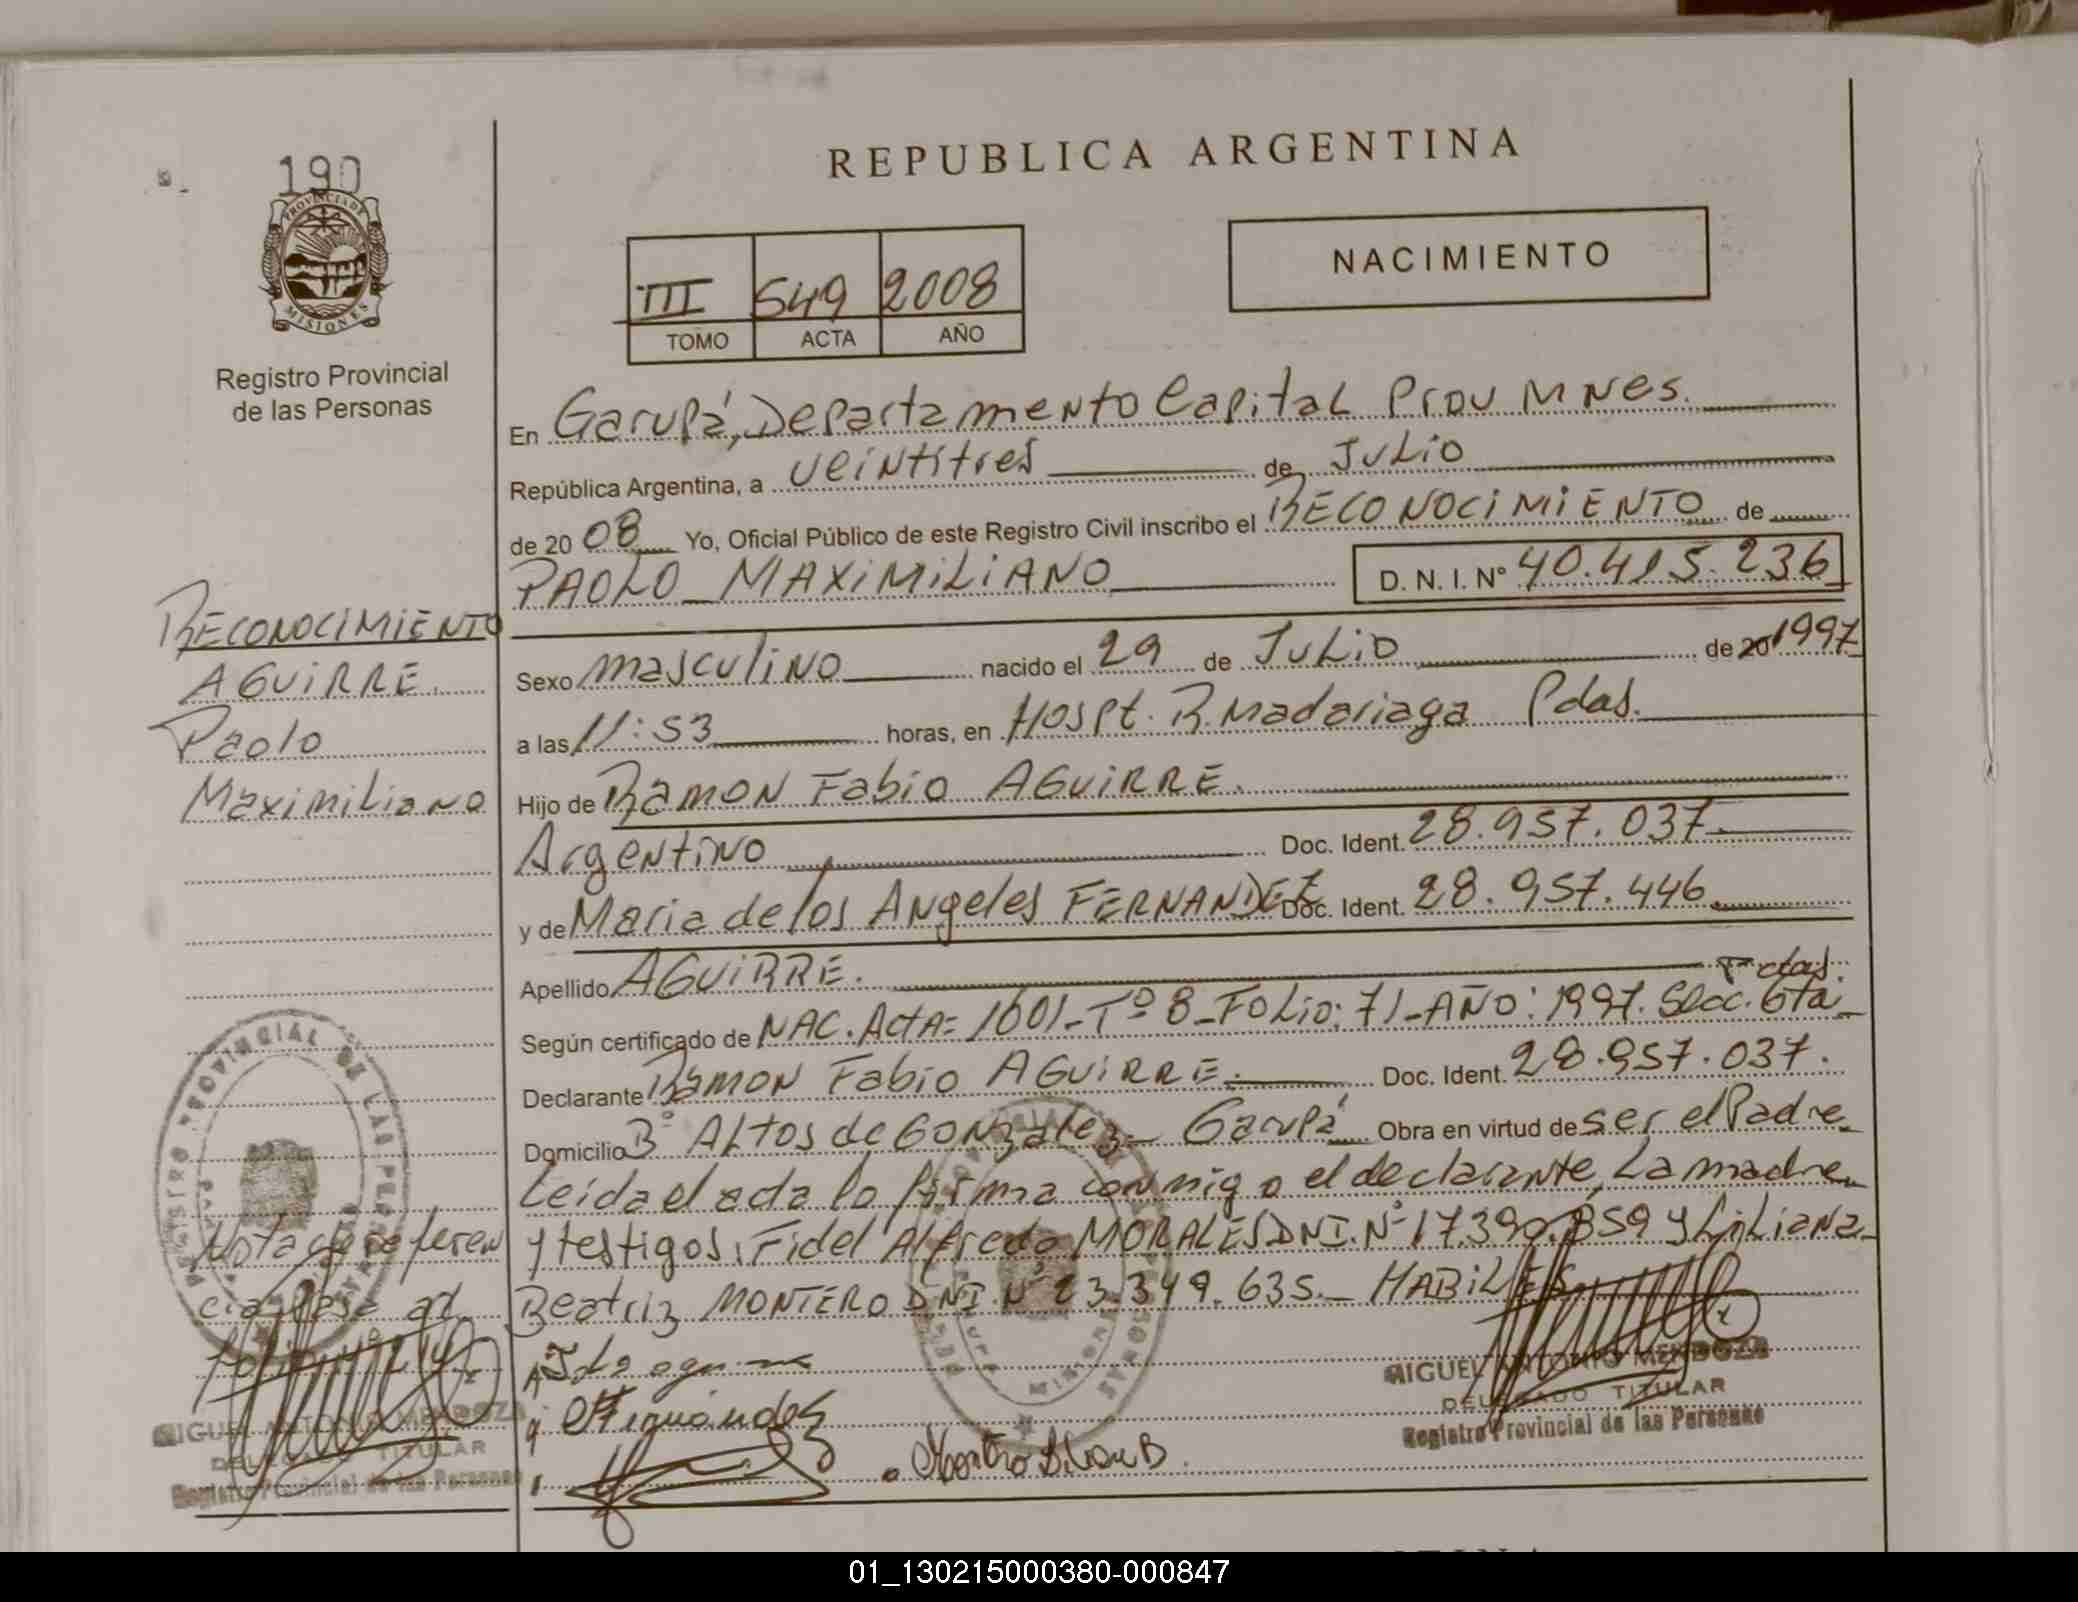 190
PROVINCIA DE
MISIONES
Registro Provincial
de las Personas
REPUBLICA ARGENTINA
III 549 2008
TOMO ACTA AÑO
NACIMIENTO
En Garupá, Departamento Capital Prov MNes.
República Argentina, a veintitres de Julio
de 2008 Yo, Oficial Público de este Registro Civil inscribo el RECONOCIMIENTO de
PAOLO MAXIMILIANO D.N.I.Nº 40.415.236
RECONOCIMIENTO
AGUIRRE
Paolo
Maximiliano
Sexo masculino nacido el 29 de Julio de 20 1997
a las 11:53 horas, en Hospt. R. Madariaga Pdas.
Hijo de Ramon Fabio AGUIRRE.
Argentino Doc. Ident. 28.957.037.
y de Maria de los Angeles FERNANDEZ Doc. Ident. 28.957.446
Apellido AGUIRRE.
Según certificado de NAC. Acta= 1601-Tº 8-Folio: 71-AÑO: 1997. Secc. 6ta Pdas.
Declarante Ramon Fabio AGUIRRE. Doc. Ident. 28.957.037.
Domicilio Bº Altos de Gonzalez - Garupá Obra en virtud de ser el Padre
Leida el acta la firma conmigo el declarante, La madre
y testigos. Fidel Alfredo MORALES DNI. Nº 17.390.859 y Liliana
Beatriz MONTERO DNI Nº 23.349.635. HABILES
Nota de referen
MIGUEL ANTONIO MENDOZA
DELEGADO TITULAR
Registro Provincial de las Personas
MIGUEL ANTONIO MENDOZA
DELEGADO TITULAR
Registro Provincial de las Personas
01_130215000380-000847